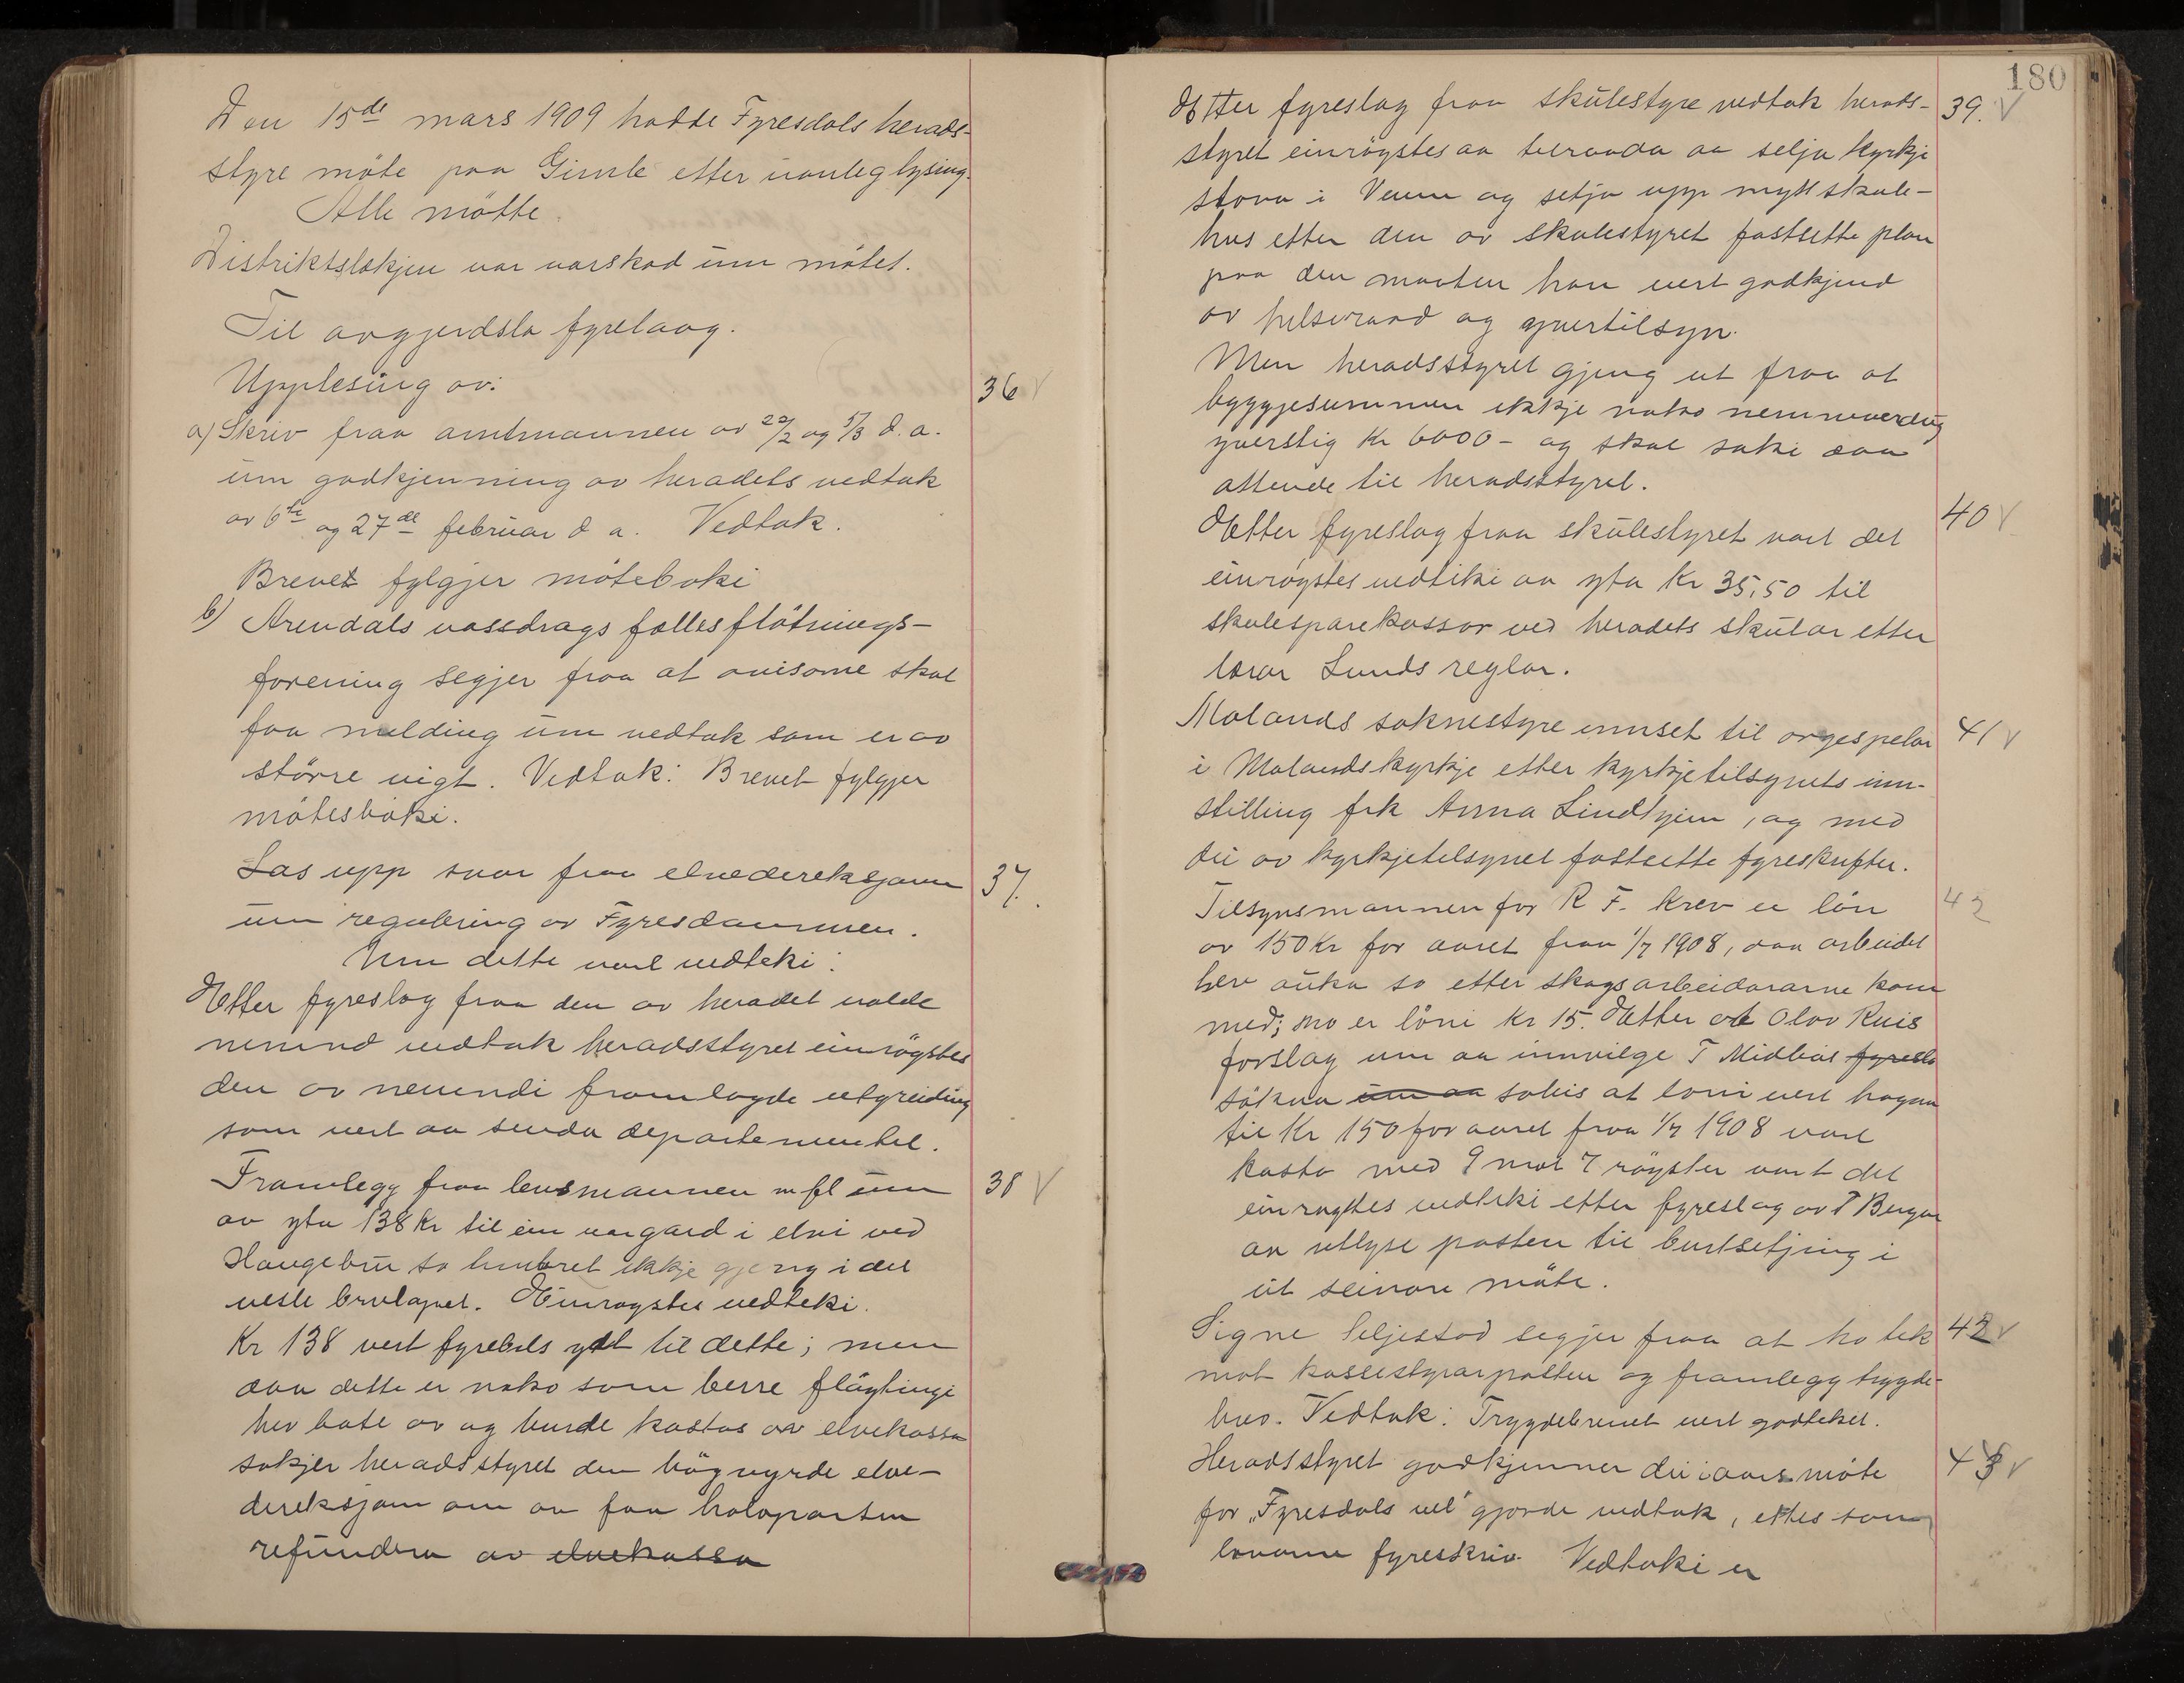 Den 15de mars 1909 hadde Fyresdals herads-
styre möte paa Gimle etter vanleg lysing.
Alle mötte.
Distriktslækjen var varskad um mötet.
Til avgjerdsla fyrelaag.
Upplesing av: 36 V
a) Skriv fraa amtmannen av 22/2 og 5/3 d. a.
um godkjenning av heradets vedtak
av 6te og 27de februar d a. Vedtak.
Brevet fylgjer möteboki
b) Arendals vassdrags fællesflötnings-
forening segjer fraa at avisorne skal
faa melding um vedtak som er av
större vigt. Vedtak: Brevet fylgjer
mötesboki.
Las upp svar fraa elvedereksjonen 37.
um regulering av Fyresdammen.
Um dette vart vedteki:
Etter fyreslag fraa den av heradet valde
nemnd vedtok heradsstyret einröystes
den av nemndi framlagde utgreiding
som vert aa senda departementet.
Framlegg fraa lensmannen m fl um 38 V
aa yta 138 Kr til ein vargard i elvi ved
Haugebru so timbret ikkje gjeng i det
vesle brulapet. Einröystes vedteki.
Kr 138 vert fyrebels ydt til dette; men
daa dette er noko som berre flöytingi
hev bate av og burde kostas av elvekassa
sökjer heradsstyret den högvyrde elve-
dereksjon om aa faa halvparten
refundera av elvekassa
180
Etter fyreslag fraa skulestyre vedtok herads- 39. V
styret einröystes aa tilraada aa selja kyrkje
stova i Veum og setja upp nytt skule-
hus etter den av skulestyret fastsette plan
paa den maaten han vert godkjend
av helseraad og yvertilsyn.
Men heradsstyret gjeng ut fraa at
byggjesummen ikkje noko nemneverdig
yverstig Kr 6000- og skal saki daa
attende til heradsstyret.
Etter fyreslag fraa skulestyret vart det 40 V
einröystes vedteki aa yta Kr 35,50 til
skulesparekassor ved heradets skular etter
lærar Lunds reglar.
Molands soknestyre innset til orgespelar 41 V
i Molandskyrkje etter kyrkjetilsynets inn-
stilling frk Anna Lindhjem, og med
dei av kyrkjetilsynet fastsette fyreskrifter.
Tilsynsmannen for R F. krev ei lön 42
av 150 Kr for aaret fraa 1/7 1908, daa arbeidet
hev auka so etter skogsarbeidararne kom
med; no er löni Kr 15. Etter at Olav Kuis
forslag um aa innvilge T Midbös fyresla
söknad um aa soleis at löni vert hogen
til Kr 150 for aaret fraa 1/7 1908 vart
kasta med 9 mot 7 röyster vart det
einröystes vedteki etter fyreslag av T Bergan
aa utlyse posten til burtsetjing i
eit seinare möte.
Signe Seljestad segjer fraa at ho tek 42 V
mot kassestyrarposten og framlegg trygde-
brev. Vedtak: Trygdebrevet vert godteket.
Heradsstyret godkjenner dei i aarsmöte 43 V
for "Fyresdals vel" gjorde vedtak, ettes som
lovarne fyreskriv. Vedtaki er